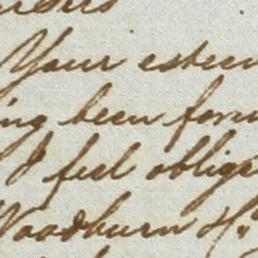 Your esteem
ng been forw
I feel oblige
Woodburn Hy